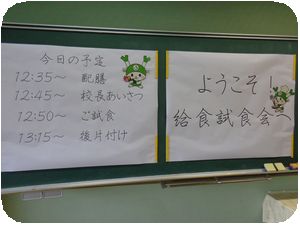 今日の予定
12:35〜 配膳
12:45〜 校長あいさつ
12:50〜 ご試食
13:15〜 後片付け
ようこそ!
給食試食会へ